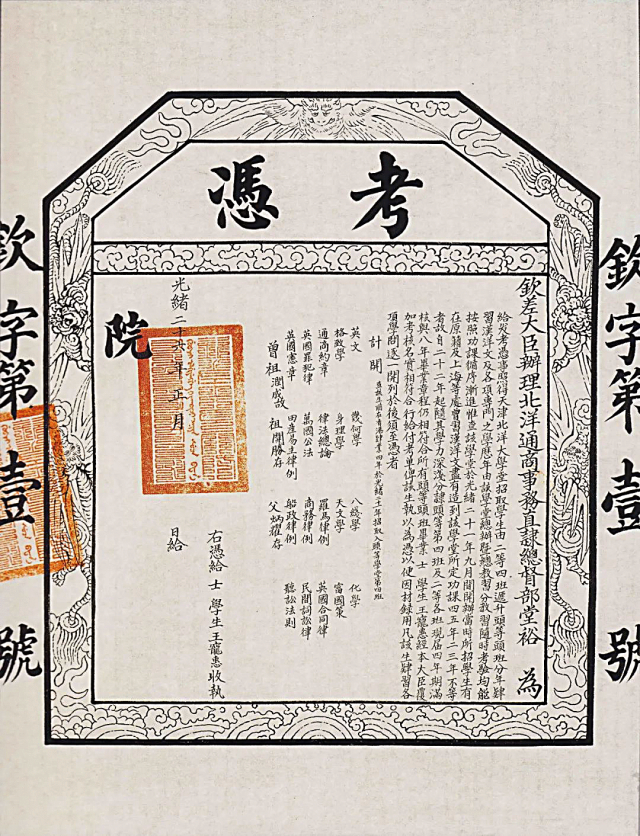 考憑
欽字第壹號
欽差大臣辦理北洋通商事務直隸總督部堂裕 為
給發考憑事照得天津北洋大學堂招取學生由二等四班遞升頭等頭班分年肄
習漢洋文及各項專門之學歷年由該學堂總辦暨總教習分教習隨時考驗均能
按照功課循序漸進惟查該學堂於光緒二十一年九月間開辦當時所招學生有
在原籍及上海等處曾習漢洋文尽有造到該學堂所定功課四五年二三年不等
者故自二十二年起隨其學力深淺分隸頭等第四班及二等各班現屆四年期滿
核與八年畢業章程仍相符合所有頭等頭班畢業士 學生王寵惠經本大臣覆
加考核名實相符合行給付考單俾該生執以為憑以便因材錄用凡該生肄習各
項學問逐一開列於後須至憑者
計開
英文 幾何學 八綫學 化學
格致學 身理學 天文學 富國策
通商約章 律法總論 羅馬律例 英國合同律
英國罪犯律 萬國公法 商務律例 民間詞訟律
英國憲章 田產易主律例 船政律例 聽訟法則
曾祖潤成故 祖開勝存 父炳耀存
右憑給 士 學生王寵惠收執
光緒二十六年正月 日給
院
欽字第壹號